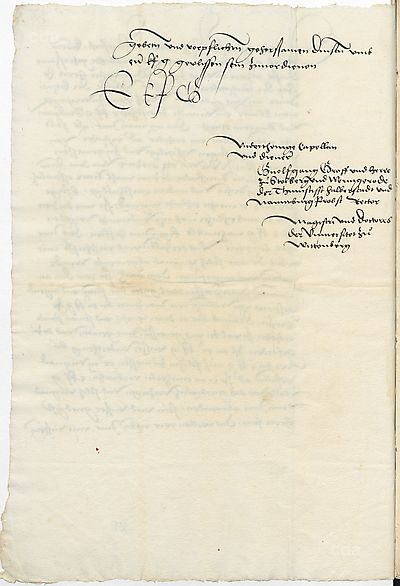 gebeten und vorpflichten gehorssamen Dinsten umb
E K F G
Underthenige Capellan
und diener
Wolffgang Groff und Herre
zu Stolberg und Wernigerode
der Thumstifft Halberstadt und
Naumburg Probst Rector
Magistri und Doctores
der Universitet zu
Wittenberg
cda